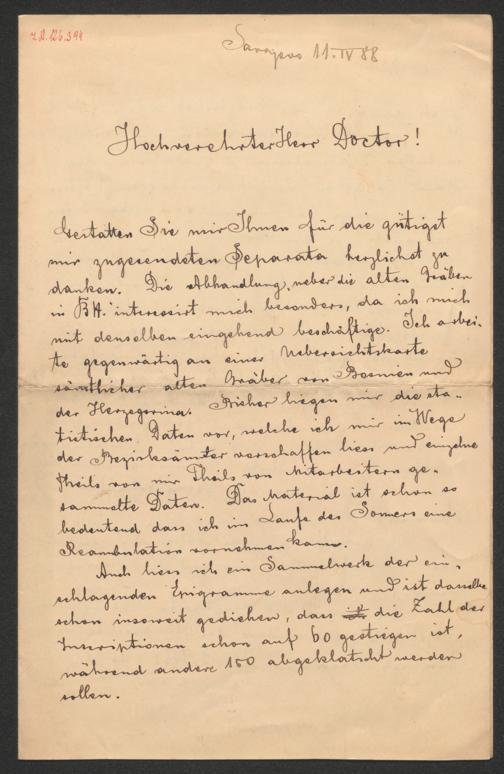 Z. A. 126.344
Sarajevo 11. IV 88
Hochverehrter Herr Doctor!
Gestatten Sie mir Ihnen für die gütigst
mir zugesendeten Separata herzlichst zu
danken. Die Abhandlung „ueber die alten Gräber
in BH." interessirt mich besonders, da ich mich
mit denselben eingehend beschäftige. Ich arbei-
te gegenwärtig an einer Uebersichtskarte
sämtlicher alten Gräber von Bosnien und
der Herzegovina. Bisher liegen mir die sta-
tistischen Daten vor, welche ich mir im Wege
der Bezirksämter verschaffen liess und einzelne
theils von mir theils von Mitarbeitern ge-
sammelte Daten. Das Material ist schon so
bedeutend dass ich im Laufe des Sommers eine
Reambulation vornehmen kann.
Auch liess ich ein Sammelwerk der ein-
schlagenden Epigramme anlegen und ist dasselbe
schon insoweit gediehen, dass die Zahl der
Inscriptionen schon auf 60 gestiegen ist,
während andere 150 abgeklatscht werden
sollen.